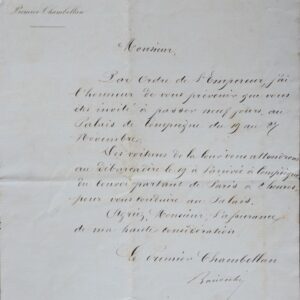 Premier Chambellan
Monsieur,
Par Ordre de l'Empereur, j'ai
l'honneur de vous prévenir que vous
êtes invité à passer neuf jours, au
Palais de Compiègne du 19 au 27
Novembre.
Des voitures de la Couronne attendront
au débarcadère le 19 à l'arrivée à Compiègne
du convoi partant de Paris à 2 heures
pour vous conduire au Palais.
Agréez, Monsieur, l'assurance
de ma haute considération
Le Premier Chambellan